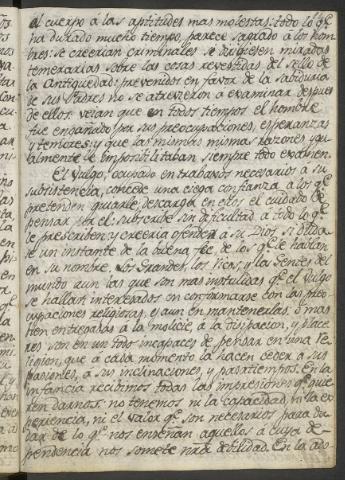 el cuerpo á las aptitudes mas molestas: todo lo qe.
ha durado mucho tiempo, parece sagrado á los hom-
bres: se creerian criminales si dirigiesen miradas
temerarias sobre las cosas revestidas del sello de
la Antiguedad: prevenidos en favor de la Sabiduria
de sus Padres no se atrevieron a examinar despues
de ellos: veían que en todos tiempos el hombre
fue engañado por sus preocupaciones, esperanzas
y temores: y que las mismas razones ygu-
almente le imposibilitaban siempre todo examen.
El vulgo, ocupado en trabajos necesarios á su
subsistencia, concede una ciega confianza á los qe.
pretenden guiarle, descarga en ellos el cuidado de
pensar por él: subscribe sin dificultad á todo lo qe.
le prescriben: y creeria ofender á su Dios si duda-
se un instante de la buena fee de los qe. le hablan
en su nombre. Los Grandes, los Ricos, y las Gentes del
mundo aun las que son mas instruidas qe. el vulgo
se hallan interesados en conformarse con las preo-
cupaciones religiosas, y aun en mantenerlas: ó mas
bien entregadas á la molicie, á la disipacion, y place-
res son en un todo incapaces de pensar en una re-
ligion, que á cada momento la hacen ceder á sus
pasiones, a sus inclinaciones, y pasatiempos. En la
infancia recibimos todas las impresiones qe. quie-
ren darnos: no tenemos ni la capacidad, ni la ex-
periencia, ni el valor qe. son necesarios para du-
dar de lo qe. nos enseñan aquellos á cuya de-
pendencia nos somete nra debilidad. En la ado-